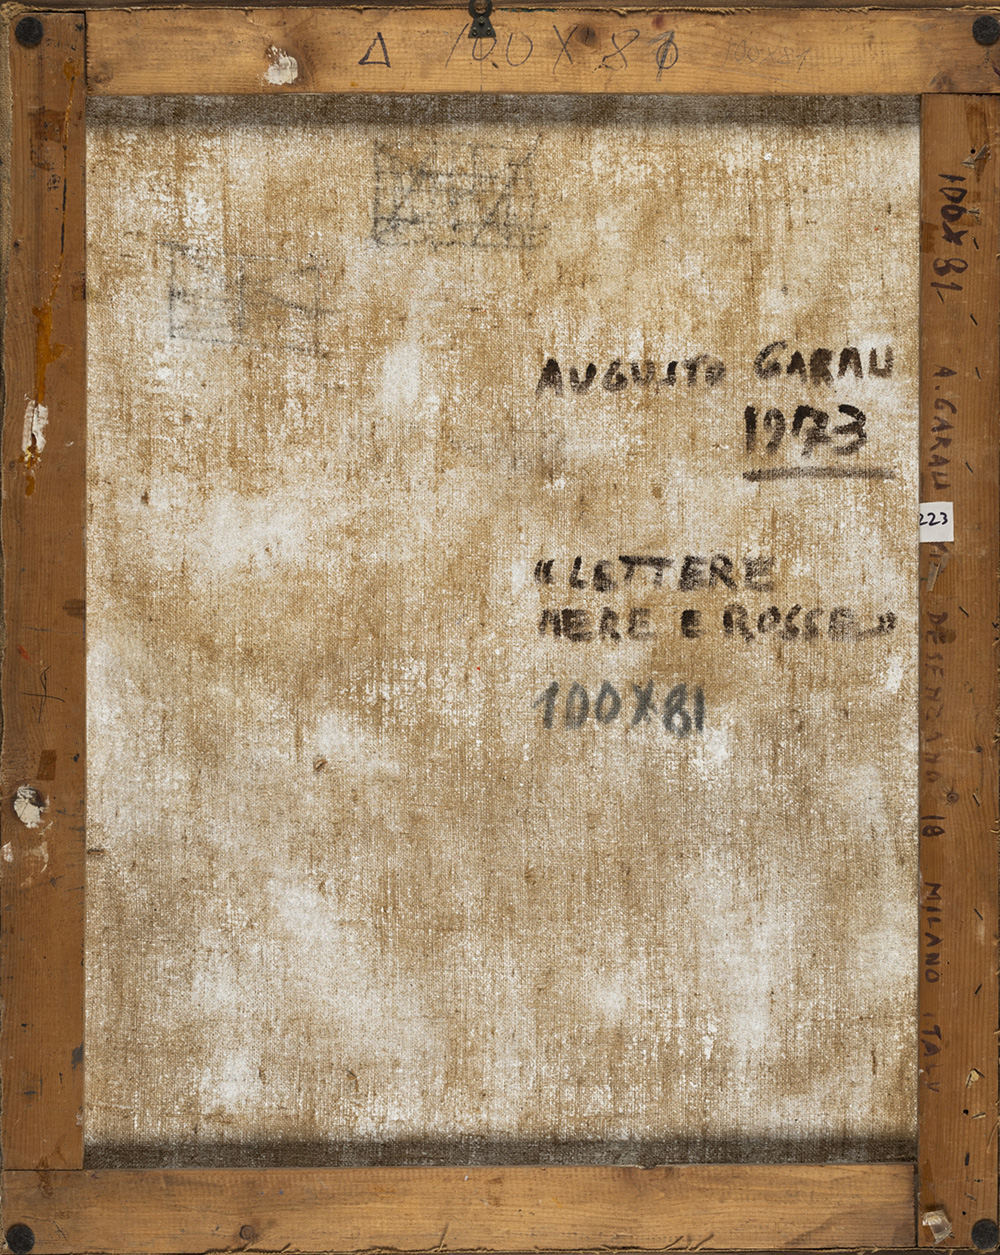 Δ 100 X 81
100x81
AUGUSTO GARAU
1973
« LETTERE
NERE E ROSSE »
100X81
100x81 A. GARAU DESENZANO 18 MILANO ITALY
223